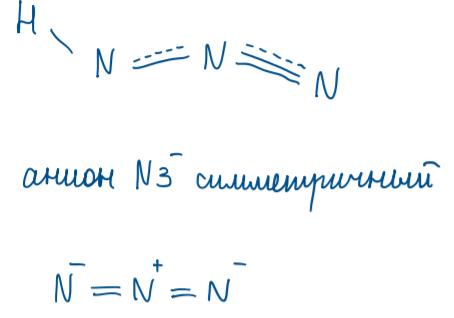 H
N N N
анион N3⁻ симметричный
N⁻ = N⁺ = N⁻